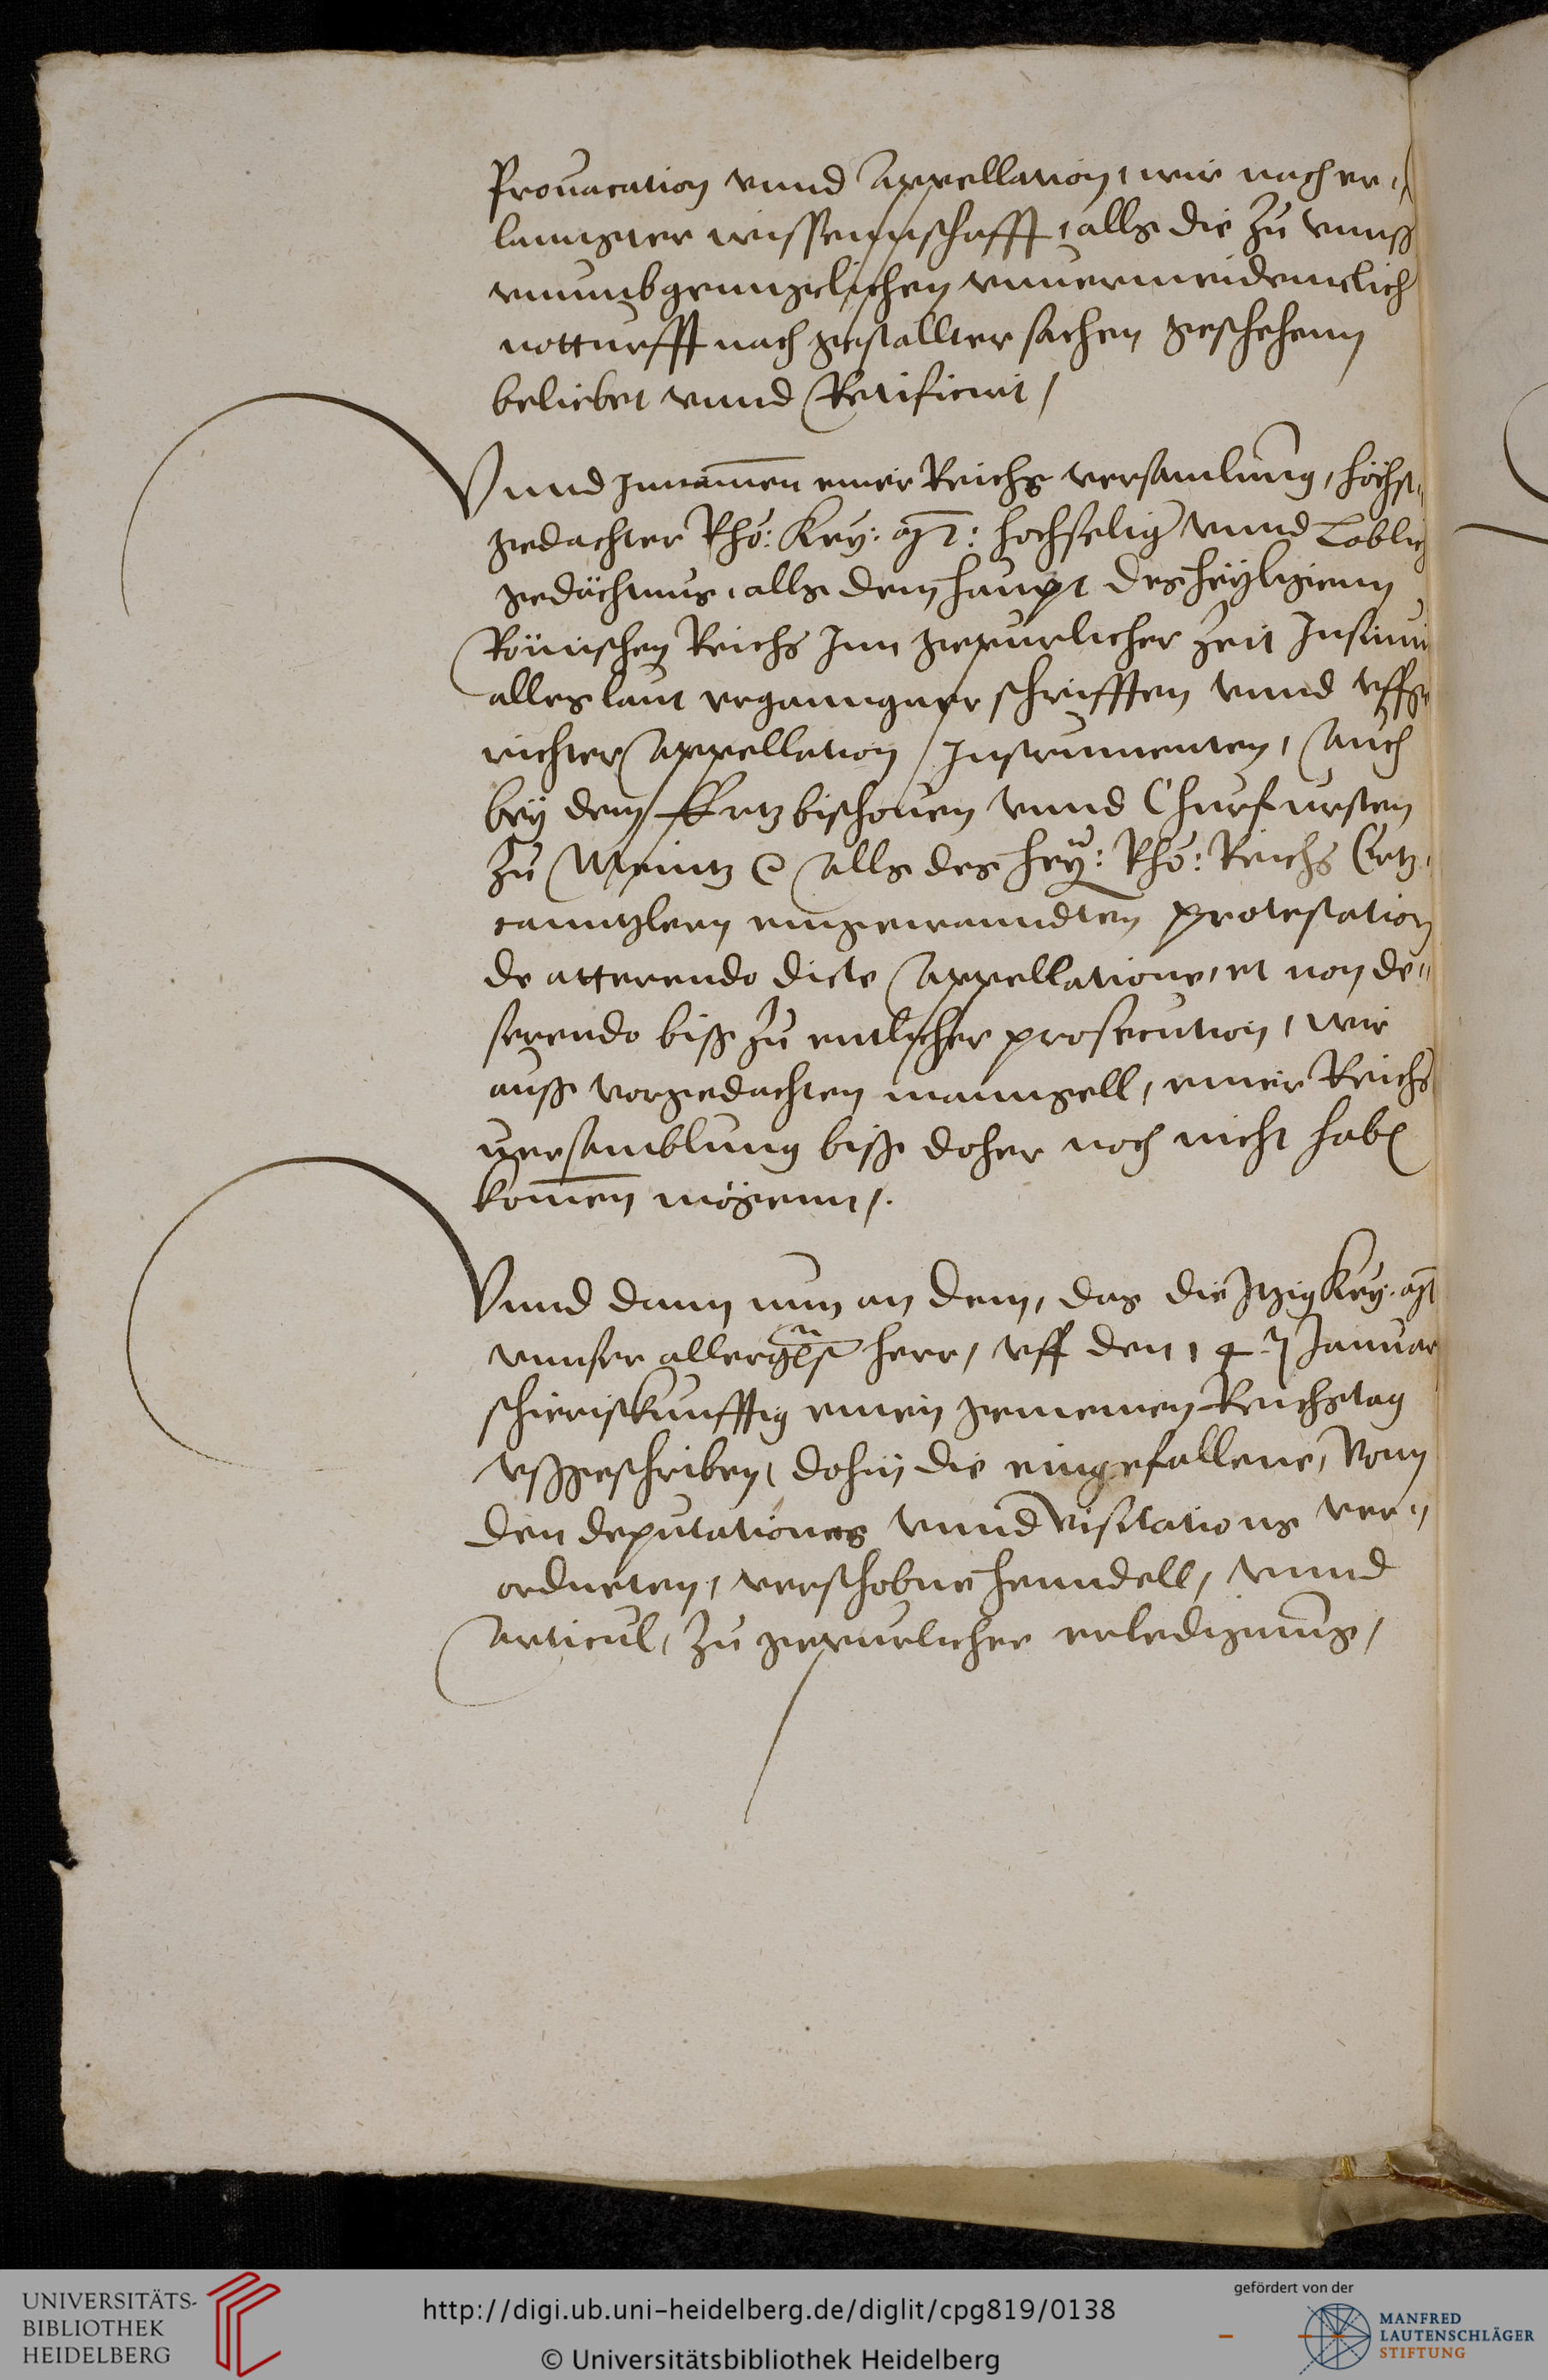 Prouacation vnnd Appellation, wir nach er„
lanngter wissennschafft, alls die zu vnnß
vnumbgenngclichen vnuermeidennlich
notturfft nach gestallter sachen geschehenn
beliebet vnnd Retificirt /
Vnnd Inmamen einer Reichs versamlung, höchst„
gedachter Rhö: Key: Mt: hochselig vnnd Loblich
gedächtnus, alls dem haupt des heyligenn
Römischen Reichs Inn gepurlicher Zeit Insinui
alles laut erganngner schrifften vnnd vffge
richter Appellation Instrumenten, Auch
bey dem Ertzbischouen vnnd Churfursten
zu Meintz alls des Hey: Rhö: Reichs Ertz„
canntzlern eingewanndten protestation
de atterendo dicte Appellatione, et non de„
serendo biß zu entlicher prosecution, wir
auß vorgedachten manngell, einer Reichs
versamblung biß doher noch nicht haben
komen mögenn /.
Vnnd dann nun an dem, das die Itzig Key. Mt
vnnser allergst herr, vff den 14 Januar
schieristkunfftig einen gemeinen Reichstag
vßgeschriben, dohin die eingefallene, Vonn
den deputationes vnnd visitations ver„
ordneten, verschobne henndell, vnnd
Articul, zu gepurlicher erledigung,
UNIVERSITÄTS-
BIBLIOTHEK
HEIDELBERG
http://digi.ub.uni-heidelberg.de/diglit/cpg819/0138
© Universitätsbibliothek Heidelberg
gefördert von der
MANFRED
LAUTENSCHLÄGER
STIFTUNG